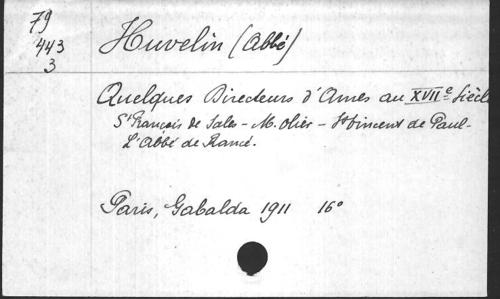 79
443
3
Huvelin (Abbé)
Quelques Directeurs d'Ames au XVIIe Siècle
St François de Sales - M. Olier - St Vincent de Paul -
L'Abbé de Rancé.
Paris, Gabalda 1911 16°